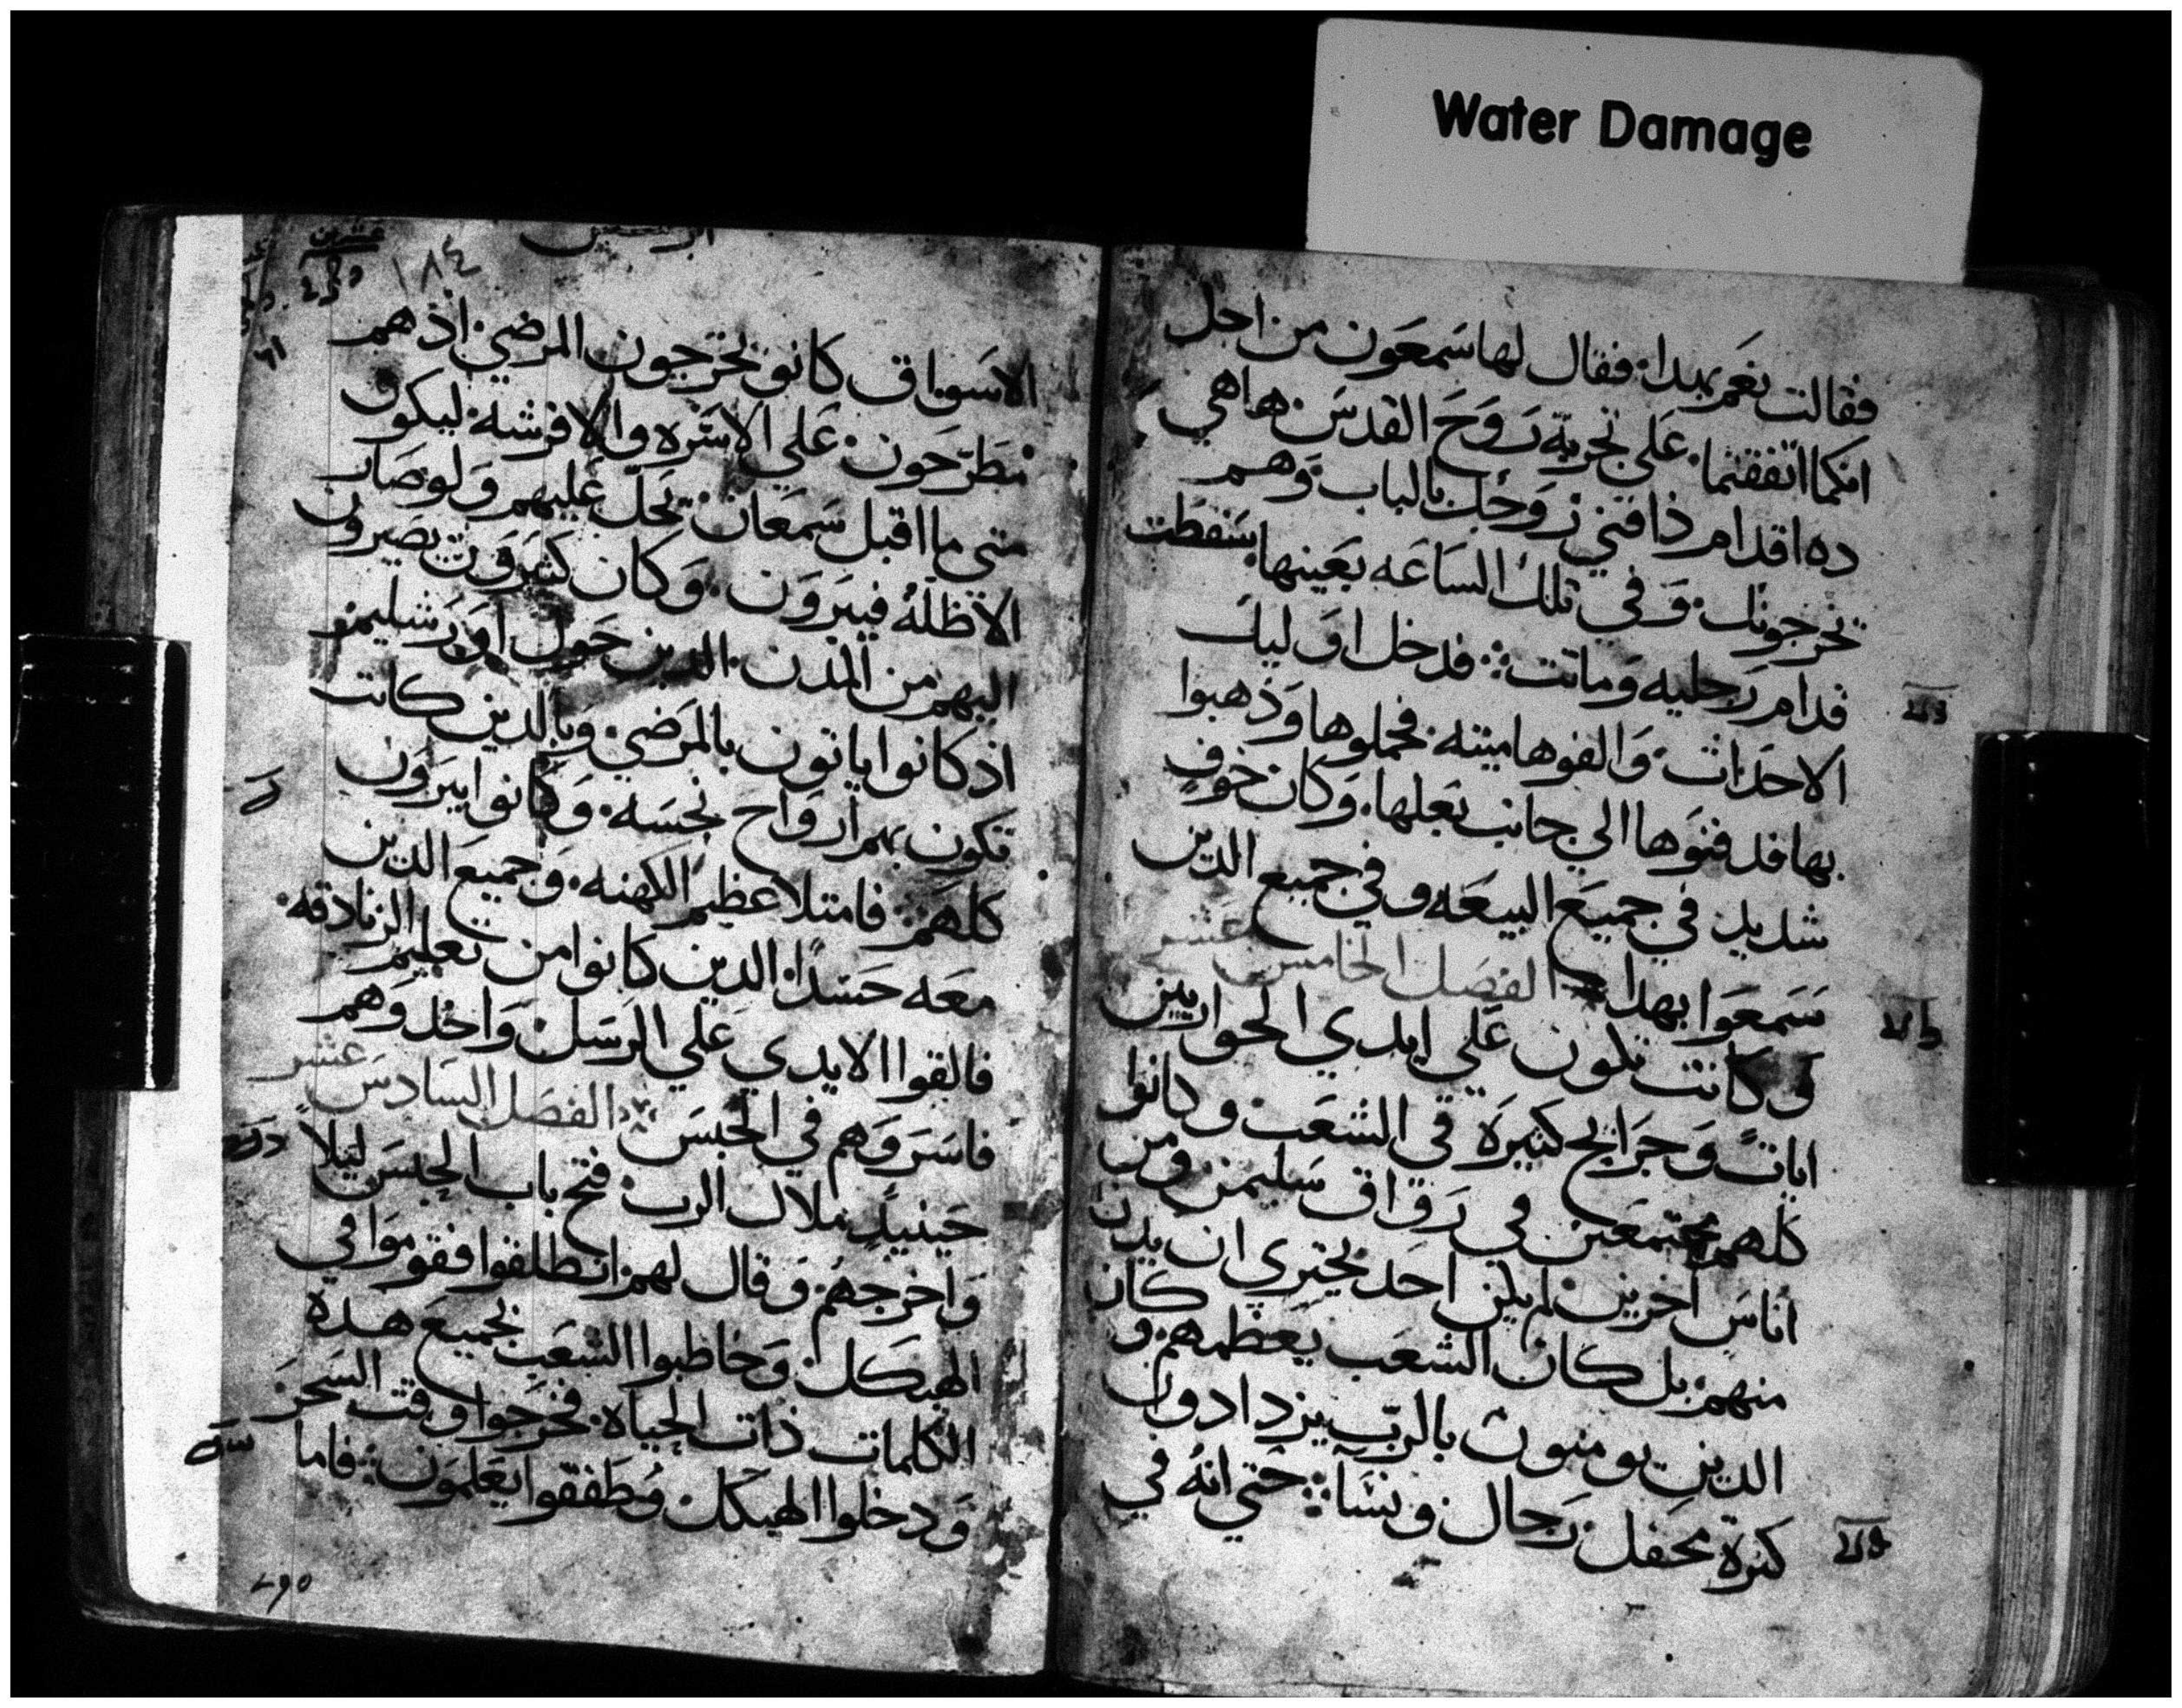 Water Damage
فقالت نعم بهدا. فقال لها سمعون من اجل
انكما اتفقتما. على تجربة روح القدس. ها هي
ده اقدام ذافني زوجك بالباب. وهم
تخرجونك. وفي تلك الساعه بعينها سقطت
قدام رجليه وماتت: فدخل اوليك
الاحداث. والفوها ميته. فحملوها وذهبوا
بها فدفنوها الي جانب بعلها. وكان خوف
شديد في جميع البيعه وفي جميع الدين
سمعوا بهدا الفصل الخامس عشر
كانت تكون علي ايدي الحواريين
ايات وجرايح كثيرة في الشعب. وكانوا
كلهم مجتمعين في رواق سليمن. ومن
اناس اخرين. لم يكن احد يجتري ان يدن
منهم. بل كان الشعب يعظمهم. وكان
الدين يومنون بالرب يزدادون
كثرة محفل رجال ونسا: حتي انه في
١٨٤
عشرين
الاسواق كانو يخرجون المرضي. اذ هم
مطرحون. علي الاسره والافرشه. ليكون
متي ما اقبل سمعان. تحل عليهم ولو صار
الاظله فيبرون. وكان كثيرون يصيرون
اليهم من المدن. الدين حول اورشليم.
اذ كانوا ياتون بالمرضي. وبالدين كانت
تكون بهم ارواح نجسه. وكانوا يبرون
كلهم: فامتلا عظيم الكهنه. وجميع الدين
معه حسدا. الدين كانوا من تعليم الزنادقه.
فالقوا الايدي علي الرسل. واخد وهم
فاسروهم في الحبس: الفصل السادس عشر
حينيد ملاك الرب. فتح باب الحبس ليلا
واخرجهم. وقال لهم. انطلقوا فقوموا في
الهيكل. وخاطبوا الشعب بجميع هده
الكلمات ذات الحياه. فخرجوا وقت السحر
ودخلوا الهيكل. وطفقوا يعلمون: فاما
٢٩٥